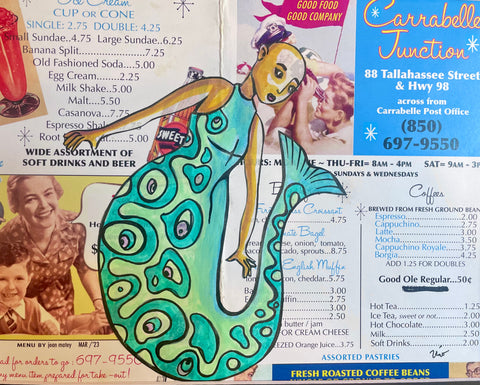 Ice Cream
CUP or CONE
SINGLE: 2.75 DOUBLE: 4.25
Small Sundae...4.75 Large Sundae..6.25
Banana Split..............7.25
Old Fashioned Soda.....5.00
Egg Cream........2.25
Milk Shake......5.00
Malt.....5.50
Casanova......7.75
Espresso Shake
Root 5.00
WIDE ASSORTMENT OF
SOFT DRINKS AND BEER
SWEET
GOOD FOOD
GOOD COMPANY
Carrabelle
Junction
88 Tallahassee Street
& Hwy 98
across from
Carrabelle Post Office
(850)
697-9550
~ THU-FRI= 8AM - 4PM SAT= 9AM - 3P
SUNDAYS & WEDNESDAYS
Croissant
4.75
Bagel
cheese, onion, tomato,
sprouts...8.75
English Muffin
cheddar.....5.75
3.00
3.50
2.75
2.00
2.50
3.50
butter / jam
OR CREAM CHEESE
Orange Juice....3.75
ASSORTED PASTRIES
FRESH ROASTED COFFEE BEANS
Coffees
BREWED FROM FRESH GROUND BEAN
Espresso...................2.00
Cappuccino..............2.75
Latte........................3.00
Mocha......................3.50
Cappuccino Royale....3.75
Borgia......................4.25
ADD 1.25 FOR DOUBLES
Good Ole Regular...50¢
Hot Tea....................1.25
Ice Tea, sweet or not......2.00
Hot Chocolate............3.00
Milk.........................2.50
Soft Drinks...............2.00
MENU BY joan matey MAR /'23
ad for orders to go : 697-9550
ny menu item prepared for take-out!